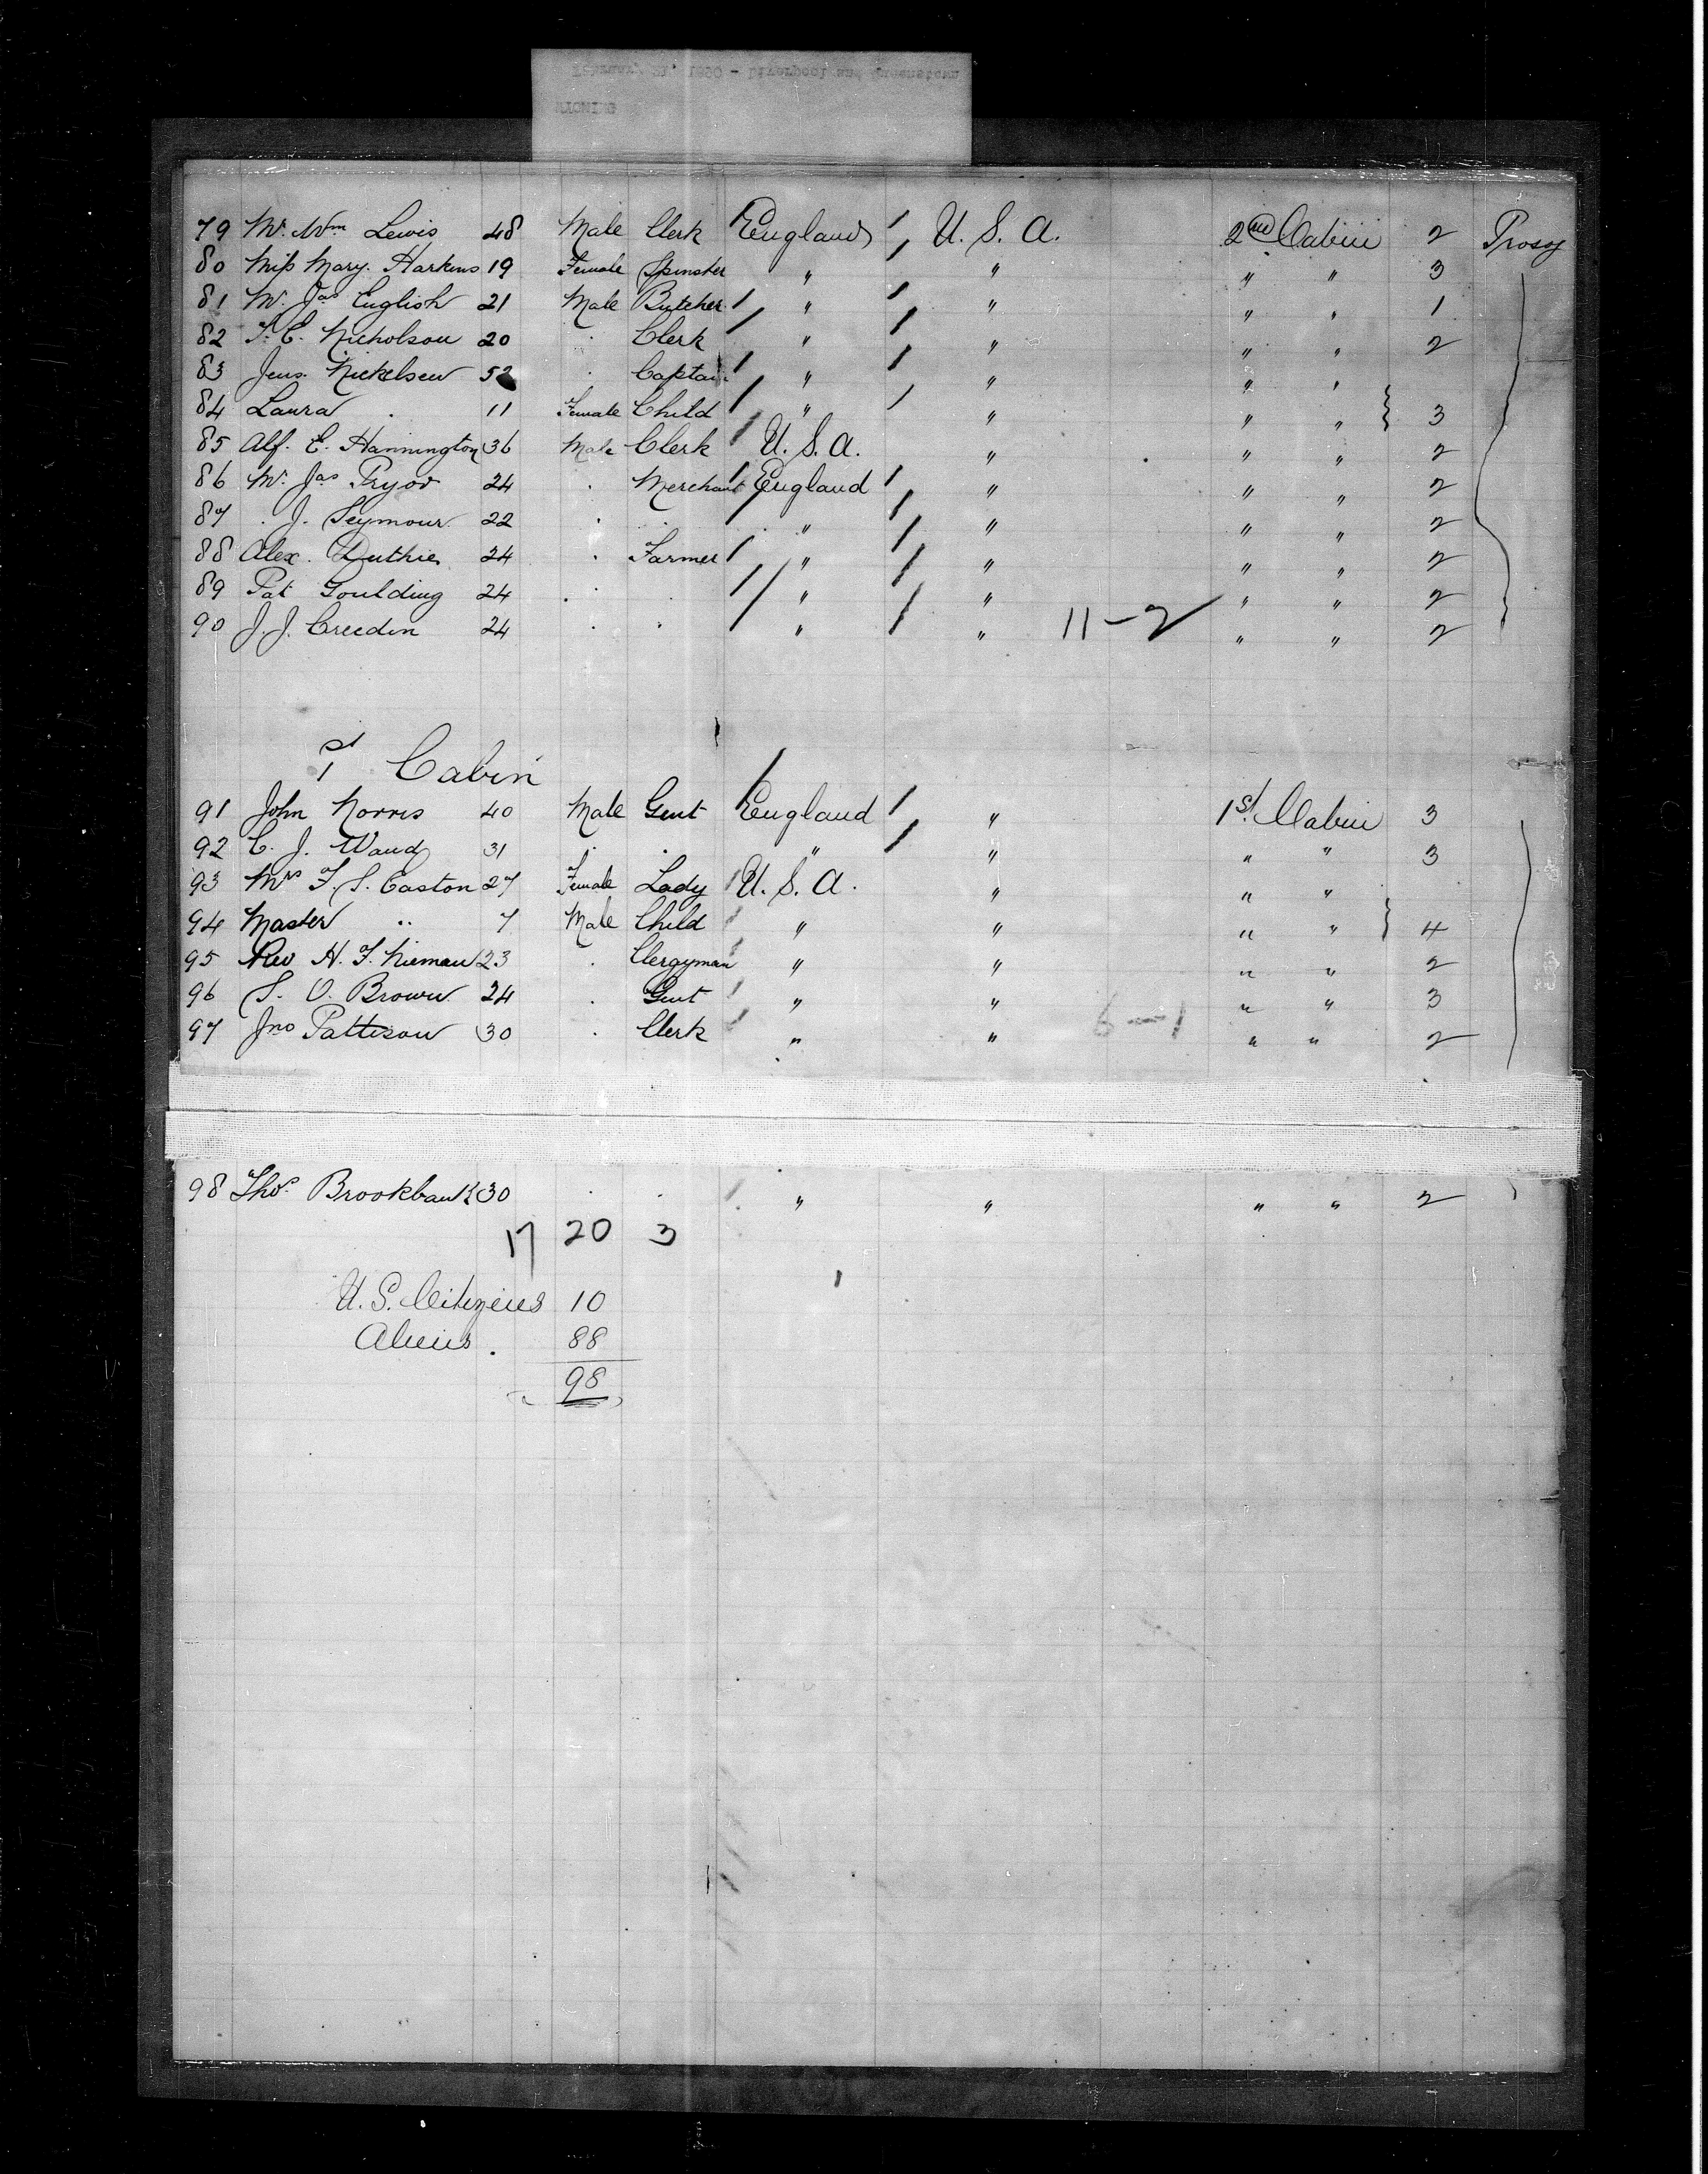 February 21, 1890 - Liverpool and Queenstown
WYOMING
79 Mr. Wm Lewis 48 Male Clerk England U. S. A. 2nd Cabin 2 Prosy
80 Miss Mary Harkins 19 Female Spinster " " " " 3
81 Mr. Jas English 21 Male Butcher " " " " 1
82 T. C. Nicholson 20 . Clerk " " " " 2
83 Jens. Nickelsen 52 . Captain " " " "
84 Laura . 11 Female Child " " " " } 3
85 Alf. E. Hannington 36 Male Clerk U. S. A. " " " 2
86 Mr. Jas Pryor 24 . Merchant England " " " 2
87 . J. Seymour 22 . . " " " " 2
88 Alex. Duthie 24 . Farmer " " " " 2
89 Pat Goulding 24 . . " " " " 2
90 J. J. Creedin 24 . . " " 11-2 " " 2
1st Cabin
91 John Norris 40 Male Gent England " 1st. Cabin 3
92 C. J. Waud 31 . . " " " " 3
93 Mrs F. S. Easton 27 Female Lady U. S. A. " " "
94 Master " 7 Male Child " " " " } 4
95 Rev H. F. Nieman 23 . Clergyman " " " " 2
96 S. O. Brown 24 . Gent " " " " 3
97 Jno Pattison 30 . Clerk " " 6-1 " " 2
98 Thos. Brookbank 30 . . " " " " 2
17 20 3
U. S. Citizens 10
Aliens. 88
98